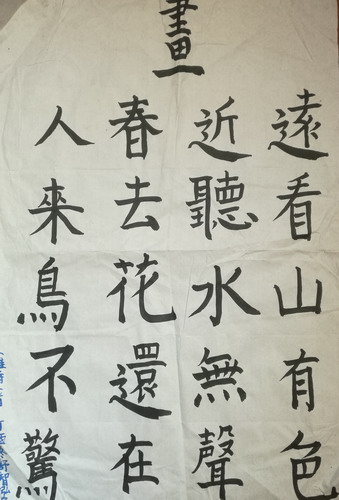 畫
遠看山有色
近聽水無聲
春去花還在
人來鳥不驚